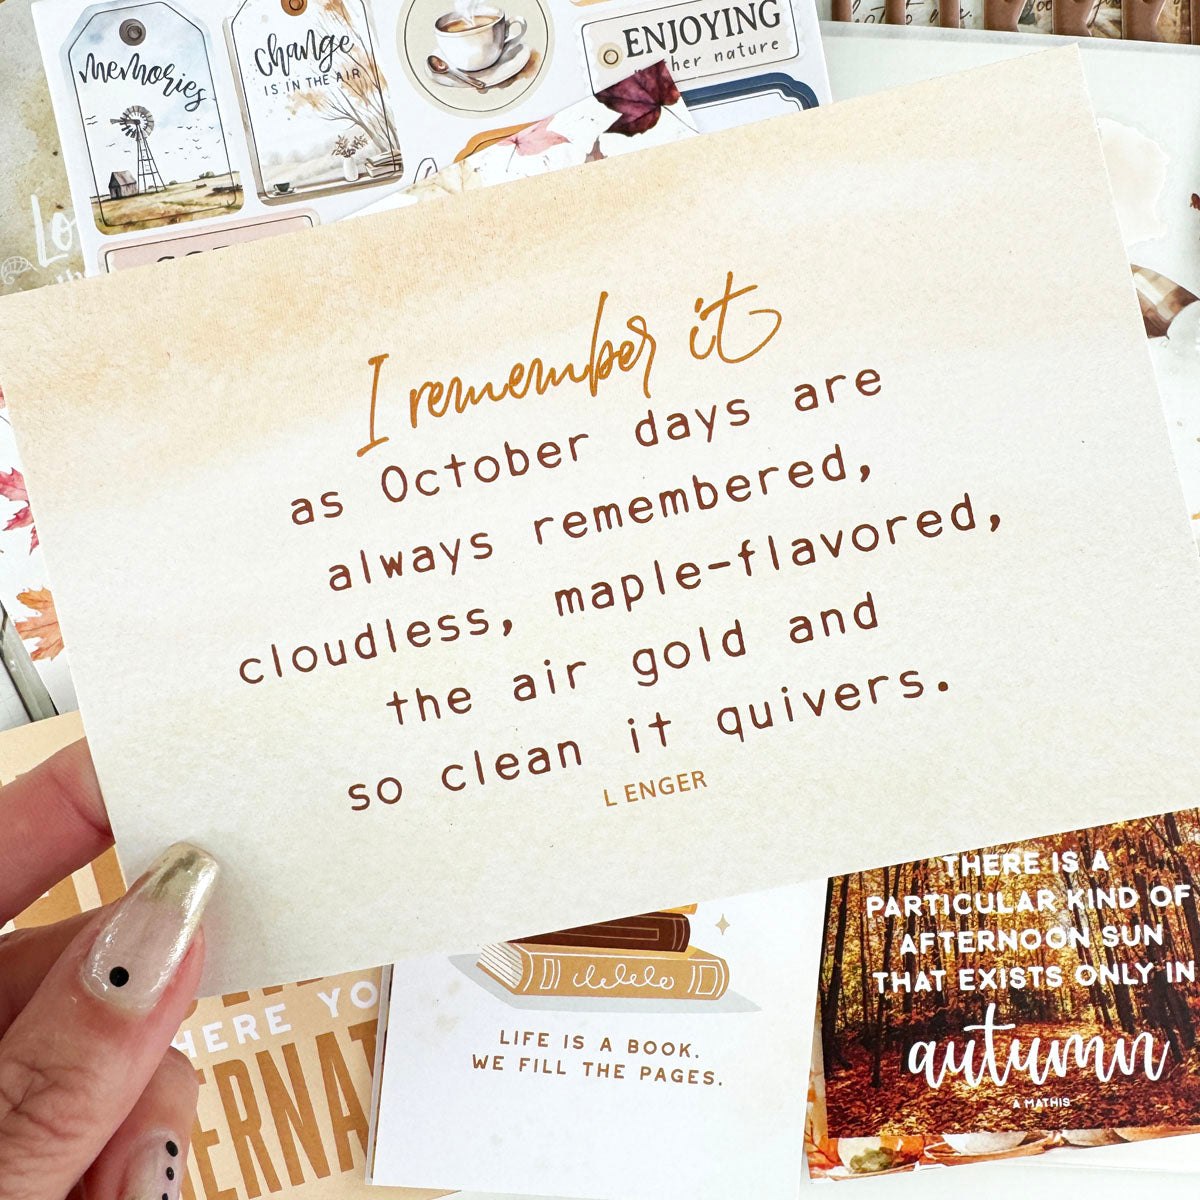 memories
change
IS IN THE AIR
ENJOYING
her nature
I remember it
as October days are
always remembered,
cloudless, maple-flavored,
the air gold and
so clean it quivers.
L ENGER
LIFE IS A BOOK.
WE FILL THE PAGES.
THERE IS A
PARTICULAR KIND OF
AFTERNOON SUN
THAT EXISTS ONLY IN
autumn
A MATHIS